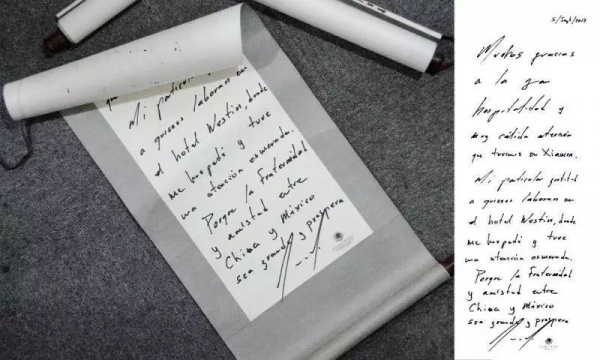 que
Mi particular
a quienes laboran en
el hotel Westin, donde
me hospedé y tuve
una atención esmerada.
Porque la fraternidad
y amistad entre
China y México
sea grande y prospera
5/Sept/2017
Muchas gracias
a la gran
hospitalidad y
muy cálida atención
que tuvimos en Xiamen.
Mi particular gratitud
a quienes laboran en
el hotel Westin, donde
me hospedé y tuve
una atención esmerada.
Porque la fraternidad
y amistad entre
China y México
sea grande y prospera